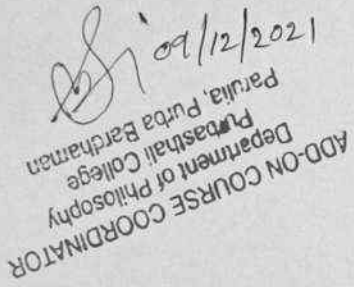 09/12/2021
ADD-ON COURSE COORDINATOR
Department of Philosophy
Purbasthali College
Parulia, Purba Bardhaman